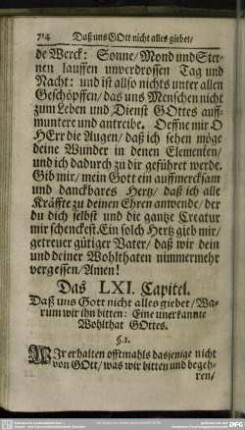 714 Daß uns GOtt nicht alles giebet/
de Werck: Sonne/ Mond und Ster-
nen lauffen unverdrossen Tag und
Nacht: und ist allso nichts unter allen
Geschöpffen/ das uns Menschen nicht
zum Leben und Dienst GOttes auff-
muntere und antreibe. Oeffne mir O
HErr die Augen/ daß ich sehen möge
deine Wunder in denen Elementen/
und ich dadurch zu dir geführet werde.
Gib mir/ mein Gott ein auffmercksam
und danckbares Hertz/ daß ich alle
Kräffte zu deinen Ehren anwende/ der
du dich selbst und die gantze Creatur
mir schenckest. Ein solch Hertz gieb mir/
getreuer gütiger Vater/ daß wir dein
und deiner Wohlthaten nimmermehr
vergessen/ Amen!
Das LXI. Capitel.
Daß uns Gott nicht alles giebet/ Wa-
rum wir ihn bitten: Eine unerkannte
Wohlthat GOttes.
§.1.
WIr erhalten offtmahls dasjenige nicht
von GOtt/ was wir bitten und begeh-
ren/